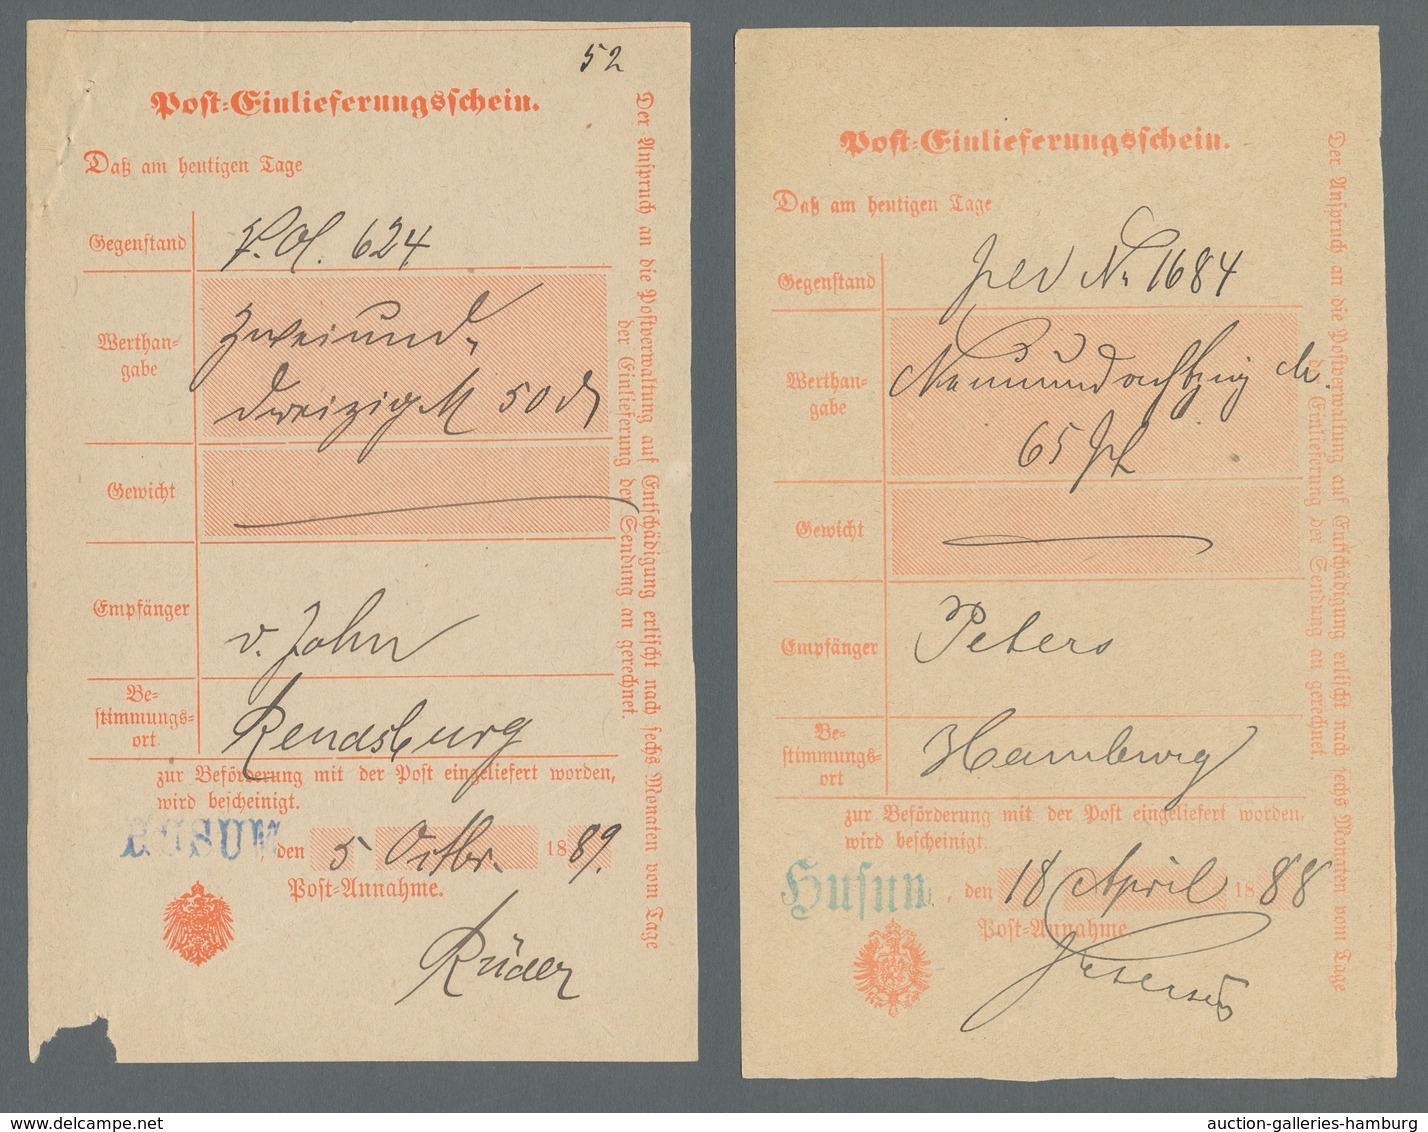 52
Post-Einlieferungsschein.
Daß am heutigen Tage
Gegenstand
624
Werthan-
gabe
zweiund
dreizig M 50 d
Gewicht
Empfänger
v. John
Be-
stimmungs-
ort
Rendsburg
zur Beförderung mit der Post eingeliefert worden,
wird bescheinigt.
HUSUM, den 5 Octbr. 1889.
Post-Annahme.
Rüder
Der Anspruch an die Postverwaltung auf Entschädigung erlischt nach sechs Monaten vom Tage
der Einlieferung der Sendung an gerechnet.
Post-Einlieferungsschein.
Daß am heutigen Tage
Gegenstand
No 1684
Werthan-
gabe
Neunundachtzig M.
65 Pf
Gewicht
Empfänger
Peters
Be-
stimmungs-
ort
Hamburg
zur Beförderung mit der Post eingeliefert worden,
wird bescheinigt.
Husum, den 18 April 1888
Post-Annahme
Petersen
Der Anspruch an die Postverwaltung auf Entschädigung erlischt nach sechs Monaten vom Tage
der Einlieferung der Sendung an gerechnet.
auction-galleries-hamburg